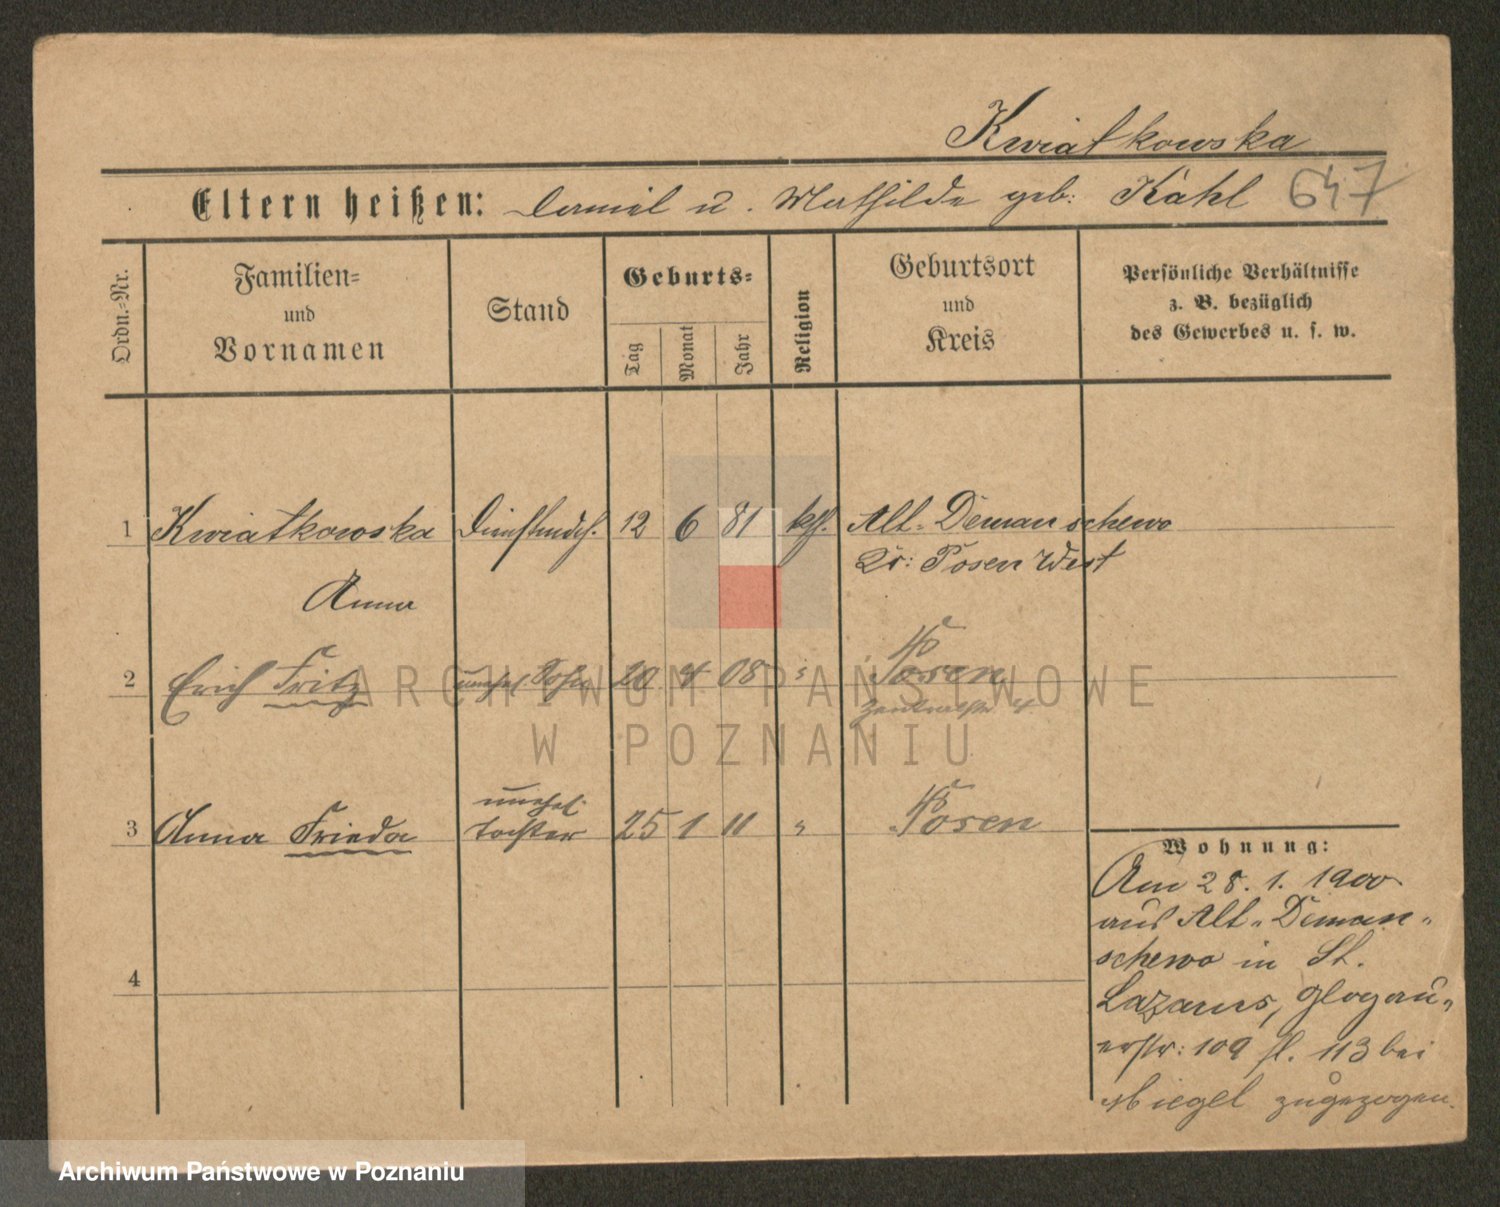 Kwiatkowska
Eltern heißen: Daniel u. Mathilde geb: Kahl 647
Ordn.-Nr.
Familien-
und
Vornamen
Stand
Geburts-
Tag
Monat
Jahr
Religion
Geburtsort
und
Kreis
Persönliche Verhältnisse
z. B. bezüglich
des Gewerbes u. s. w.
1 Kwiatkowska Dienstmdch. 12 6 81 kth. Alt-Demanschewo
Kr: Posen West
Anna
2 Erich Fritz unehel. Sohn 20 4 08 " Posen
3 Anna Frieda unehel. Tochter 25 1 11 " Posen
4
Wohnung:
Am 28. 1. 1900
aus Alt-Deman-
schewo in St.
Lazarus, Glogau-
erstr: 109 fl. 113 bei
Miegel zugezogen.
ARCHIWUM PAŃSTWOWE
W POZNANIU
Archiwum Państwowe w Poznaniu